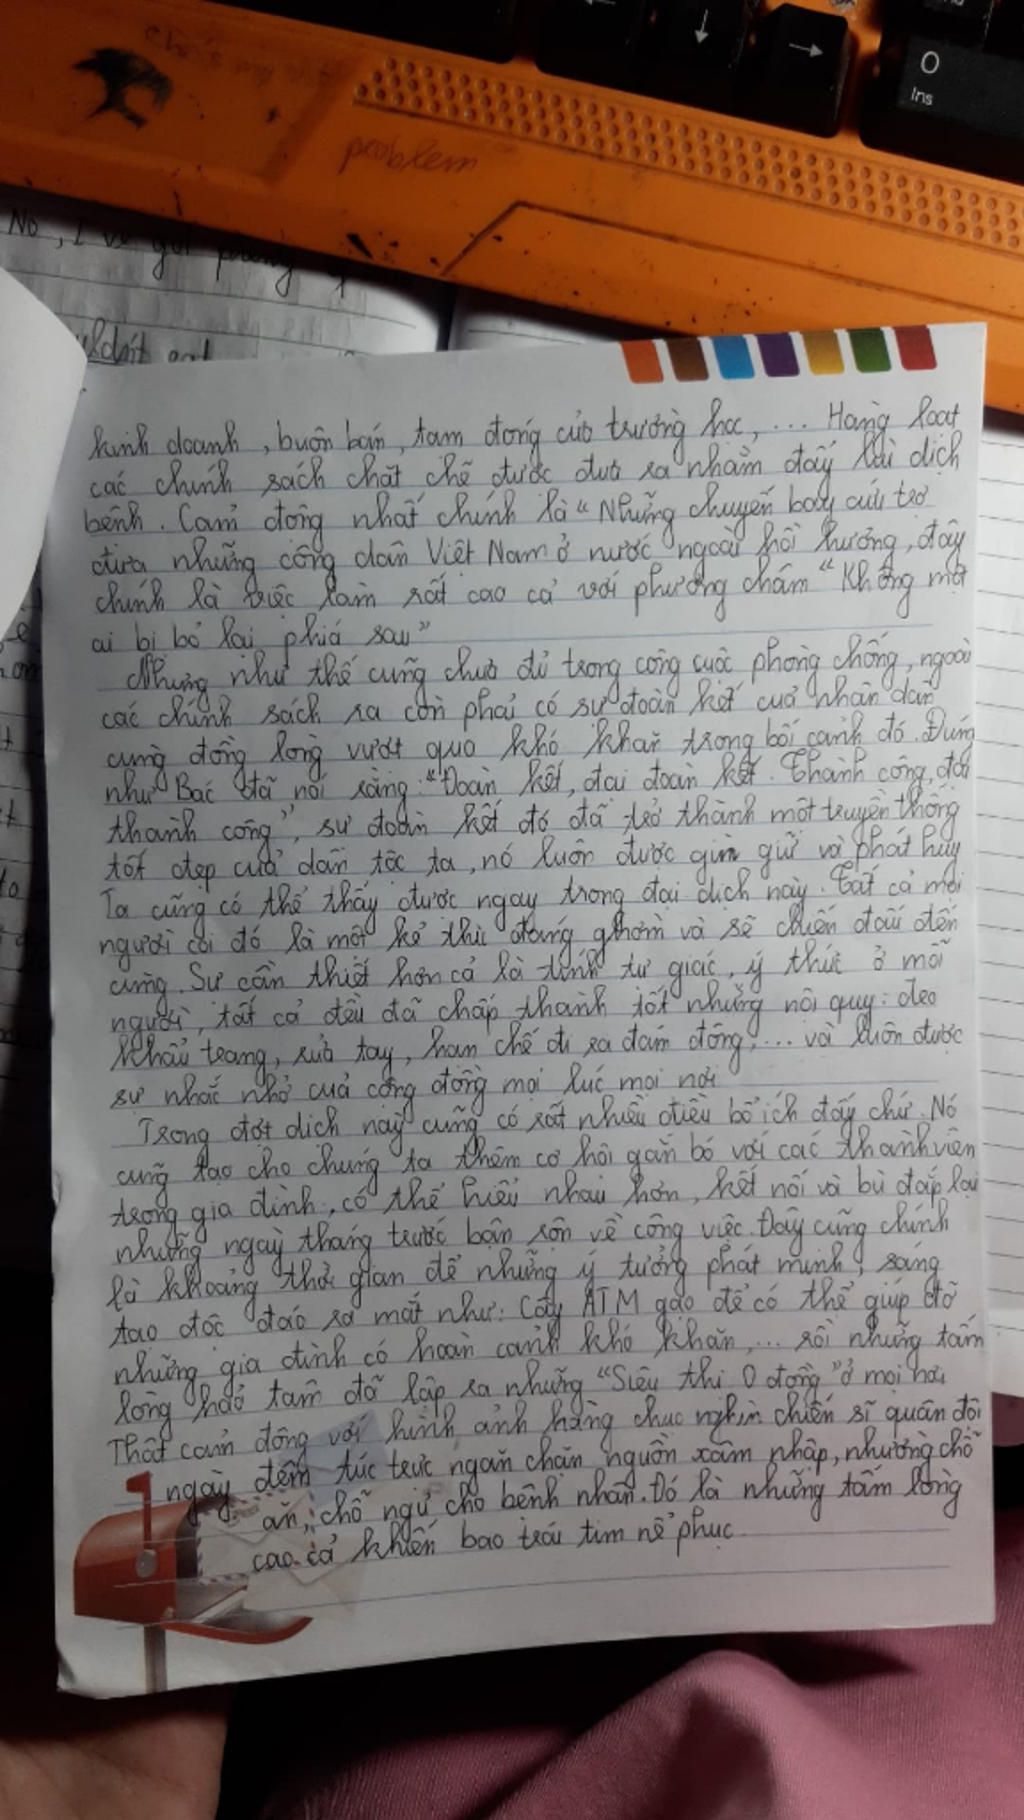 O
Ins
problem
No, I've got
kinh doanh, buôn bán, tạm đóng cửa trường học, ... Hàng loạt
các chính sách chặt chẽ được đưa ra nhằm đẩy lùi dịch
bệnh. Cảm động nhất chính là "Những chuyến bay cứu trợ
đưa những công dân Việt Nam ở nước ngoài hồi hương, đây
chính là việc làm rất cao cả với phương châm "Không một
ai bị bỏ lại phía sau"
Nhưng như thế cũng chưa đủ trong công cuộc phòng chống, ngoài
các chính sách ra còn phải có sự đoàn kết của nhân dân
cùng đồng lòng vượt qua khó khăn trong bối cảnh đó. Đúng
như Bác đã nói rằng: "Đoàn kết, đại đoàn kết. Thành công, đại
thành công", sự đoàn kết đó đã trở thành một truyền thống
tốt đẹp của dân tộc ta, nó luôn được gìn giữ và phát huy
Ta cũng có thể thấy được ngay trong đại dịch này. Tất cả mọi
người coi đó là một kẻ thù đáng ghờm và sẽ chiến đấu đến
cùng. Sự cần thiết hơn cả là tính tự giác, ý thức ở mỗi
người, tất cả đều đã chấp thành tốt những nội quy: đeo
khẩu trang, rửa tay, hạn chế đi ra đám đông, ... và luôn được
sự nhắc nhở của cộng đồng mọi lúc mọi nơi
Trong đợt dịch này cũng có rất nhiều điều bổ ích đấy chứ. Nó
cũng tạo cho chúng ta thêm cơ hội gắn bó với các thành viên
trong gia đình, có thể hiểu nhau hơn, kết nối và bù đắp lại
những ngày tháng trước bận rộn về công việc. Đây cũng chính
là khoảng thời gian để những ý tưởng phát minh, sáng
tạo độc đáo ra mắt như: Cây ATM gạo để có thể giúp đỡ
những gia đình có hoàn cảnh khó khăn, ... rồi những tấm
lòng hảo tâm đã lập ra những "Siêu thị 0 đồng" ở mọi nơi
Thật cảm động với hình ảnh hàng chục nghìn chiến sĩ quân đội
ngày đêm túc trực ngăn chặn nguồn xâm nhập, nhường chỗ
ăn, chỗ ngủ cho bệnh nhân. Đó là những tấm lòng
cao cả khiến bao trái tim nể phục